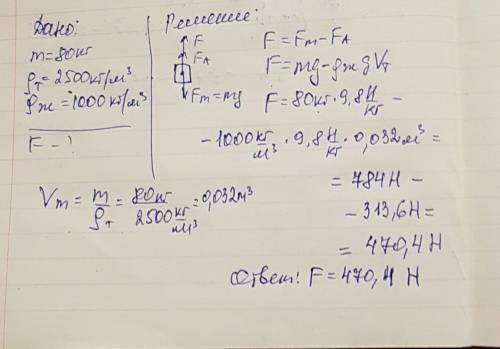 Дано:
m=80кг
ρт=2500кг/м³
ρж=1000кг/м³
F-?
Решение:
F
FA
Fт=mg
F=Fт-FA
F=mg-ρжgVт
F=80кг·9,8Н/кг -
-1000кг/м³·9,8Н/кг·0,032м³=
=784Н-
-313,6Н=
=470,4Н
Vт=m/ρт=80кг/2500кг/м³=0,032м³
Ответ: F=470,4 Н